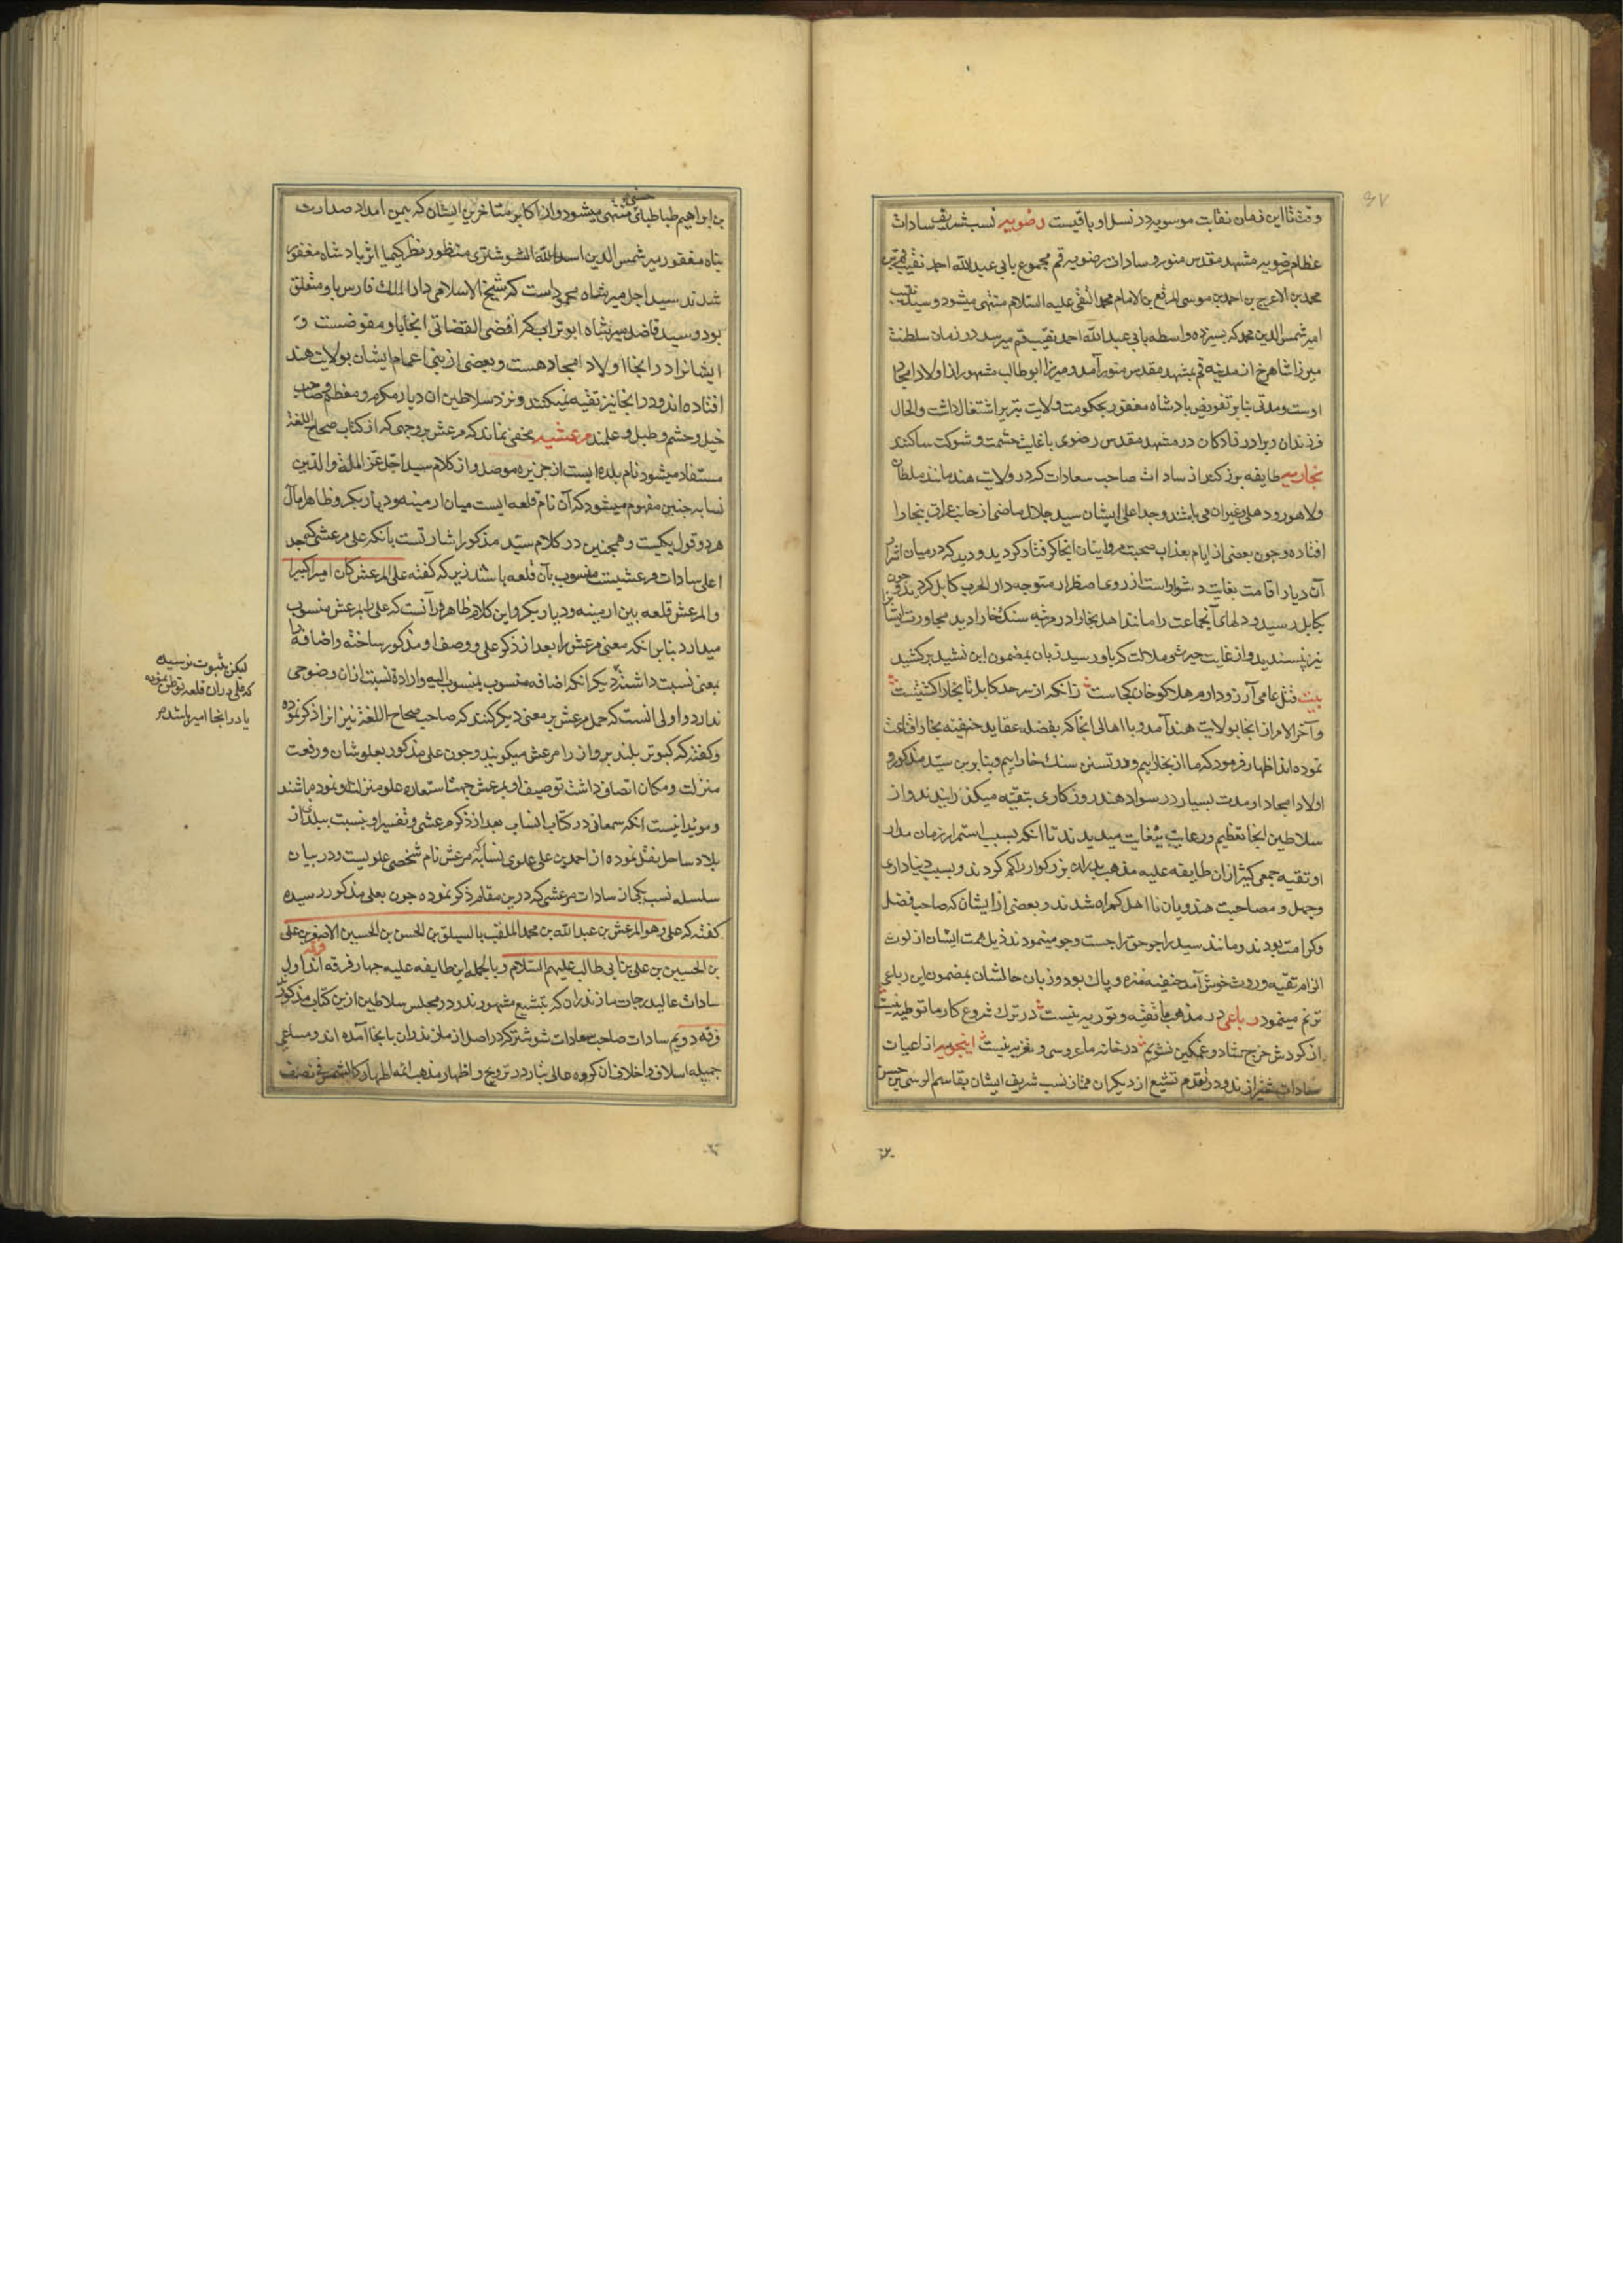 ۶۷
وقت تا این زمان نقابت موسویه در نسل او باقیست رضویه نسب شریف سادات
عظام رضویه مشهد مقدس منور و سادات رضویه قم مجموع بابی عبدالله احمد نقیب قم بن
محمد بن الاعرج بن احمد بن موسی المبرقع بن الامام محمد التقی علیه السلام منتهی میشود و سید نقیب
امیر شمس الدین محمد که بسیزده واسطه بابی عبدالله احمد نقیب قم میرسد در زمان سلطنت
میرزا شاهرخ از مدینه قم بمشهد مقدس منور آمد و میرزا ابوطالب مشهور از اولاد امجاد
اوست و مدتی بنابر تفویض پادشاه مغفور بحکومت ولایت تبریز اشتغال داشت والحال
فرزندان و برادرزادکان در مشهد مقدس رضوی با غایت حشمت و شوکت ساکنند
بخاریه طایفه بزرکند از سادات صاحب سعادات که در ولایت هند مانند ملطان
ولاهور و دهلی و غیران می باشند وجد اعلی ایشان سید جلال ماضی از جانب عراق ببخارا
افتاده وچون بعضی از ایام بعذاب صحبت مروانیان انجا کرفتار کردید و دید که در میان اشرار
آن دیار اقامت بغایت دشوار است از روی اضطرار متوجه دار الحرب کابل کردید و چون
بکابل رسید و دلهای آنجماعت را مانند اهل بخارا در مرتبه سنک خارا دید مجاورت ایشانرا
نیز نپسندید و از غایت حیرت و ملالت که باو رسید زبان بمضمون این نشید برکشید
بیت قتل عامی آرزو دارم هلاکو خان کجاست زانکه از سرحد کابل تا بخارا کشتنیست
وآخر الامر از انجا بولایت هند آمد و با اهالی انجا که بفضله عقاید حنفیه بخارا قناعت
نموده اند اظهار فرمود که ما از بخاراییم و در تسنن سنک خاراییم و بنابرین سید مذکور و
اولاد امجاد او مدت بسیار در سواد هند روزکاری بتقیه میکذرانیدند و از
سلاطین انجا تعظیم و رعایت بیغایت میدیدند تا انکه بسبب استمرار زمان مدار
او تقیه جمعی کثیر ازان طایفه علیه مذهب پدران بزرکوار را کم کردند و بسبب دنیاداری
وجهل و مصاحبت هندویان نا اهل کمراه شدند و بعضی از ایشان که صاحب فضل
وکرامت بودند و مانند سید راجو حق را جست وجو مینمودند ذیل همت ایشان از لوث
الزام تقیه و روث خوش آمد حنفیه منزه و پاک بود و زبان حالشان بمضمون این رباعی
ترنم مینمود رباعی در مذهب ما تقیه و توریه نیست در ترک شروع کار ما توطیه نیست
از کردش چرخ شاد و غمکین نشویم در خانه ما عروسی و تعزیه نیست اینجویه از اعیان
سادات شیرازند و در تقدم تشیع از دیکران ممتاز نسب شریف ایشان بقاسم الرسی بن حسن
بن ابراهیم طباطبائی حسنی منتهی میشود و از اکابر متاخرین ایشان که بیمن امداد صدارت
پناه مغفور میر شمس الدین اسدالله الشوشتری منظور نظر کیمیا اثر پادشاه مغفور
شدند سید اجل میر شاه محمود است که شیخ الاسلامی دار الملک فارس باو متعلق
بود و سید فاضل میر شاه ابوتراب که اقضی القضاتی انجا باو مفوضست و
ایشانرا در انجا اولاد امجاد هست و بعضی از بنی اعمام ایشان بولایت هند
افتاده اند و در انجا نیز تقیه نمیکنند و نزد سلاطین ان دیار مکرم و معظم و صاحب
خیل و حشم و طبل و علمند مرعشیه مخفی نماند که مرعش بر وجهی که از کتاب صحاح اللغة
مستفاد میشود نام بلده ایست از جزیره موصل و از کلام سید اجل عز المله والدین
نسابه چنین مفهوم میشود که آن نام قلعه ایست میان ارمینه و دیار بکر و ظاهرا مآل
هر دو قول یکیست و همچنین در کلام سید مذکور اشارتست بانکه علی مرعشی که جد
اعلی سادات مرعشیست منسوب بآن قلعه باشد زیرا که کفته علی المرعش کان امیرا کبیرا
والمرعش قلعه بین ارمینه و دیار بکر و این کلام ظاهر در آنست که علی را بمرعش منسوب
میدارد بنابر انکه معنی مرعش را بعد از ذکر علی و وصف او مذکور ساخته و اضافه را
بمعنی نسبت داشته دیکر انکه اضافه منسوب بمنسوب الیه و اراده نسبت ازان وضوحی
ندارد و اولی انست که حمل مرعش بر معنی دیکر کنند که صاحب صحاح اللغه نیز انرا ذکر نموده
وکفته که کبوتر بلند پرواز را مرعش میکویند و چون علی مذکور بعلو شان و رفعت
منزلت و مکان اتصاف داشت توصیف او بمرعش جهت استعاره علو منزلت او نموده باشند
و موید اینست انکه سمعانی در کتاب انساب بعد از ذکر مرعشی و تفسیر او بنسبت ببلدی از
بلاد ساحل نقل نموده از احمد بن علی علوی نسابه که مرعش نام شخصی علویست و در بیان
سلسله نسب یکی از سادات مرعشی که درین مقام ذکر نموده چون بعلی مذکور رسیده
کفته که علی وهو المرعش بن عبدالله بن محمد الملقب بالسیلق بن الحسن بن الحسین الاصغر بن علی
بن الحسین بن علی بن ابی طالب علیهم السلام و بالجمله این طایفه علیه چهار فرقه اند فرقه اول
سادات عالیدرجات مازندران که بتشیع مشهورند و در مجلس سلاطین ازین کتاب مذکور
فرقه دویم سادات صاحب سعادات شوشتر که در اصل از مازندران بانجا آمده اند و مساعی
جمیله اسلاف و اخلاف ان کروه عالی تبار در ترویج و اظهار مذهب ائمه اطهار کالشمس فی نصف
لیکن بثبوت نرسیده
که علی دران قلعه توطن نموده
یا در انجا امیر باشد